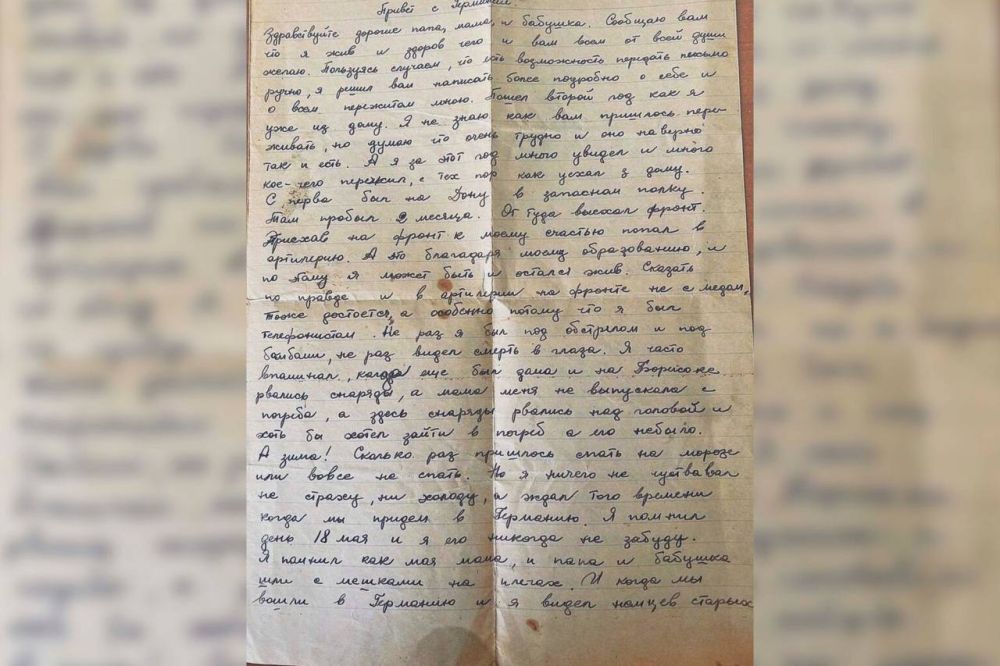 Привет с Германии
Здравствуйте дорогие папа, мама, и бабушка. Сообщаю вам
что я жив и здоров чего и вам всем от всей души
желаю. Пользуясь случаем, что есть возможность передать письмо
ручно, я решил вам написать более подробно о себе и
о всем пережитам мною. Пошел второй год как я
уже из дому. Я не знаю как вам пришлось пере-
живать, но думаю что очень трудно и оно наверно
так и есть. А я за этот год много увидел и много
кое-чего пережил, с тех пор как уехал з дому.
С перва был на Дону в запасном полку.
Там пробыл 2 месяца. От туда выехал фронт.
Приехав на фронт к моему счастью попал в
артилерию. А это благодаря моему образованию, и
по этаму я может быть и остался жив. Сказать
по правде и в артилерии на фронте не с медом,
тоже достоется, а особенно потому что я был
телефонистам. Не раз я был под обстрелом и под
бомбами, не раз видел смерть в глаза. Я часто
впаминал, когда еще был дама и на Борисоке
рвались снаряды, а мама меня не выпускала с
погреба, а здесь снаряды рвались над головой и
хоть бы хотел зайти в погреб а его небыло.
А зима! Сколько раз пришлось спать на морозе
или вовсе не спать. Но я ничего не чуствавал
не страху, ни холоду, а ждал того времени
когда мы придем в Германию. Я помнил
день 18 мая и я его никогда не забуду.
Я помнил как мая мама, и папа и бабушка
шли с мешками на плечах. И когда мы
вошли в Германию и я видел немцев старых